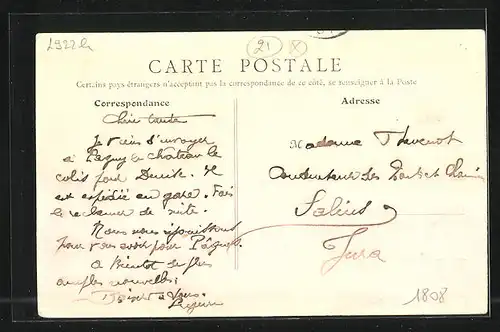 2922h
21
8
CARTE POSTALE
Certains pays étrangers n'acceptent pas la correspondance de ce côté, se renseigner à la Poste
Correspondance
Chère tante
Je viens d'envoyer
à le château le
colis pour Denise. Il
est expédié en gare. Fais
le réclamer de suite.
Nous nous réjouissons
pour vous avoir pour Pâques.
A Bientôt de plus
amples nouvelles.
à Vous
Adresse
Madame Thevenot
des Ponts et
Salins
Jura
1808